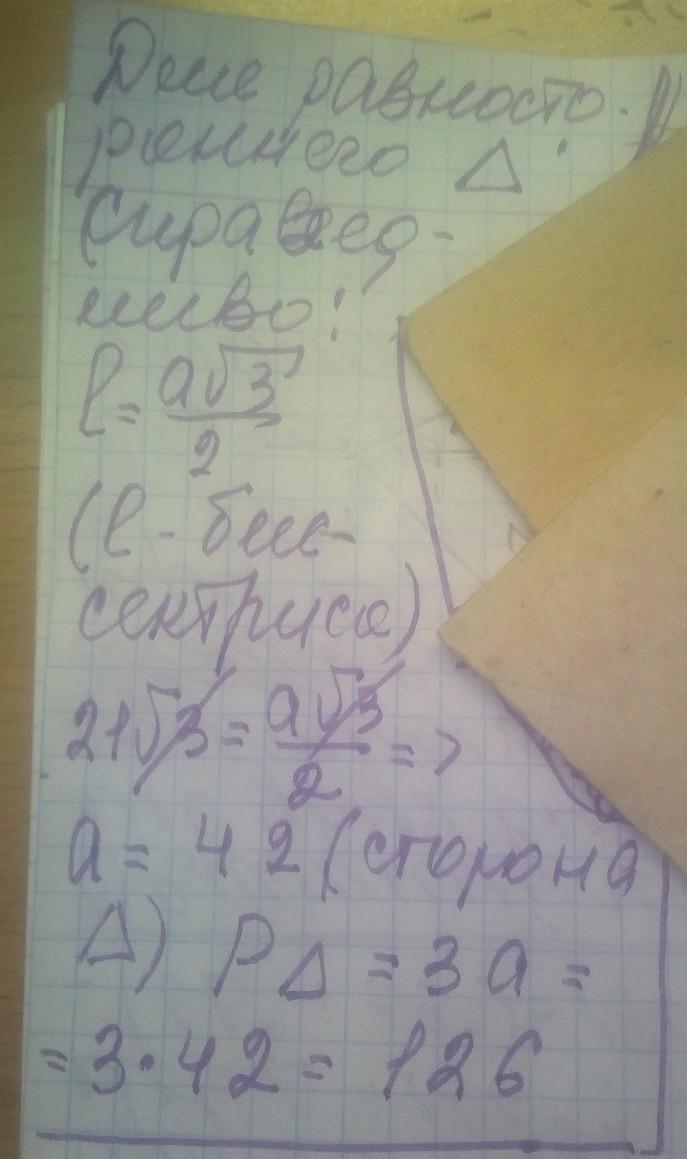 Для равносто-
роннего △
справед-
ливо:
l = a√3/2
(l - бис-
сектриса)
21√3 = a√3/2 =>
a = 42 (сторона
△) P△ = 3a =
= 3·42 = 126